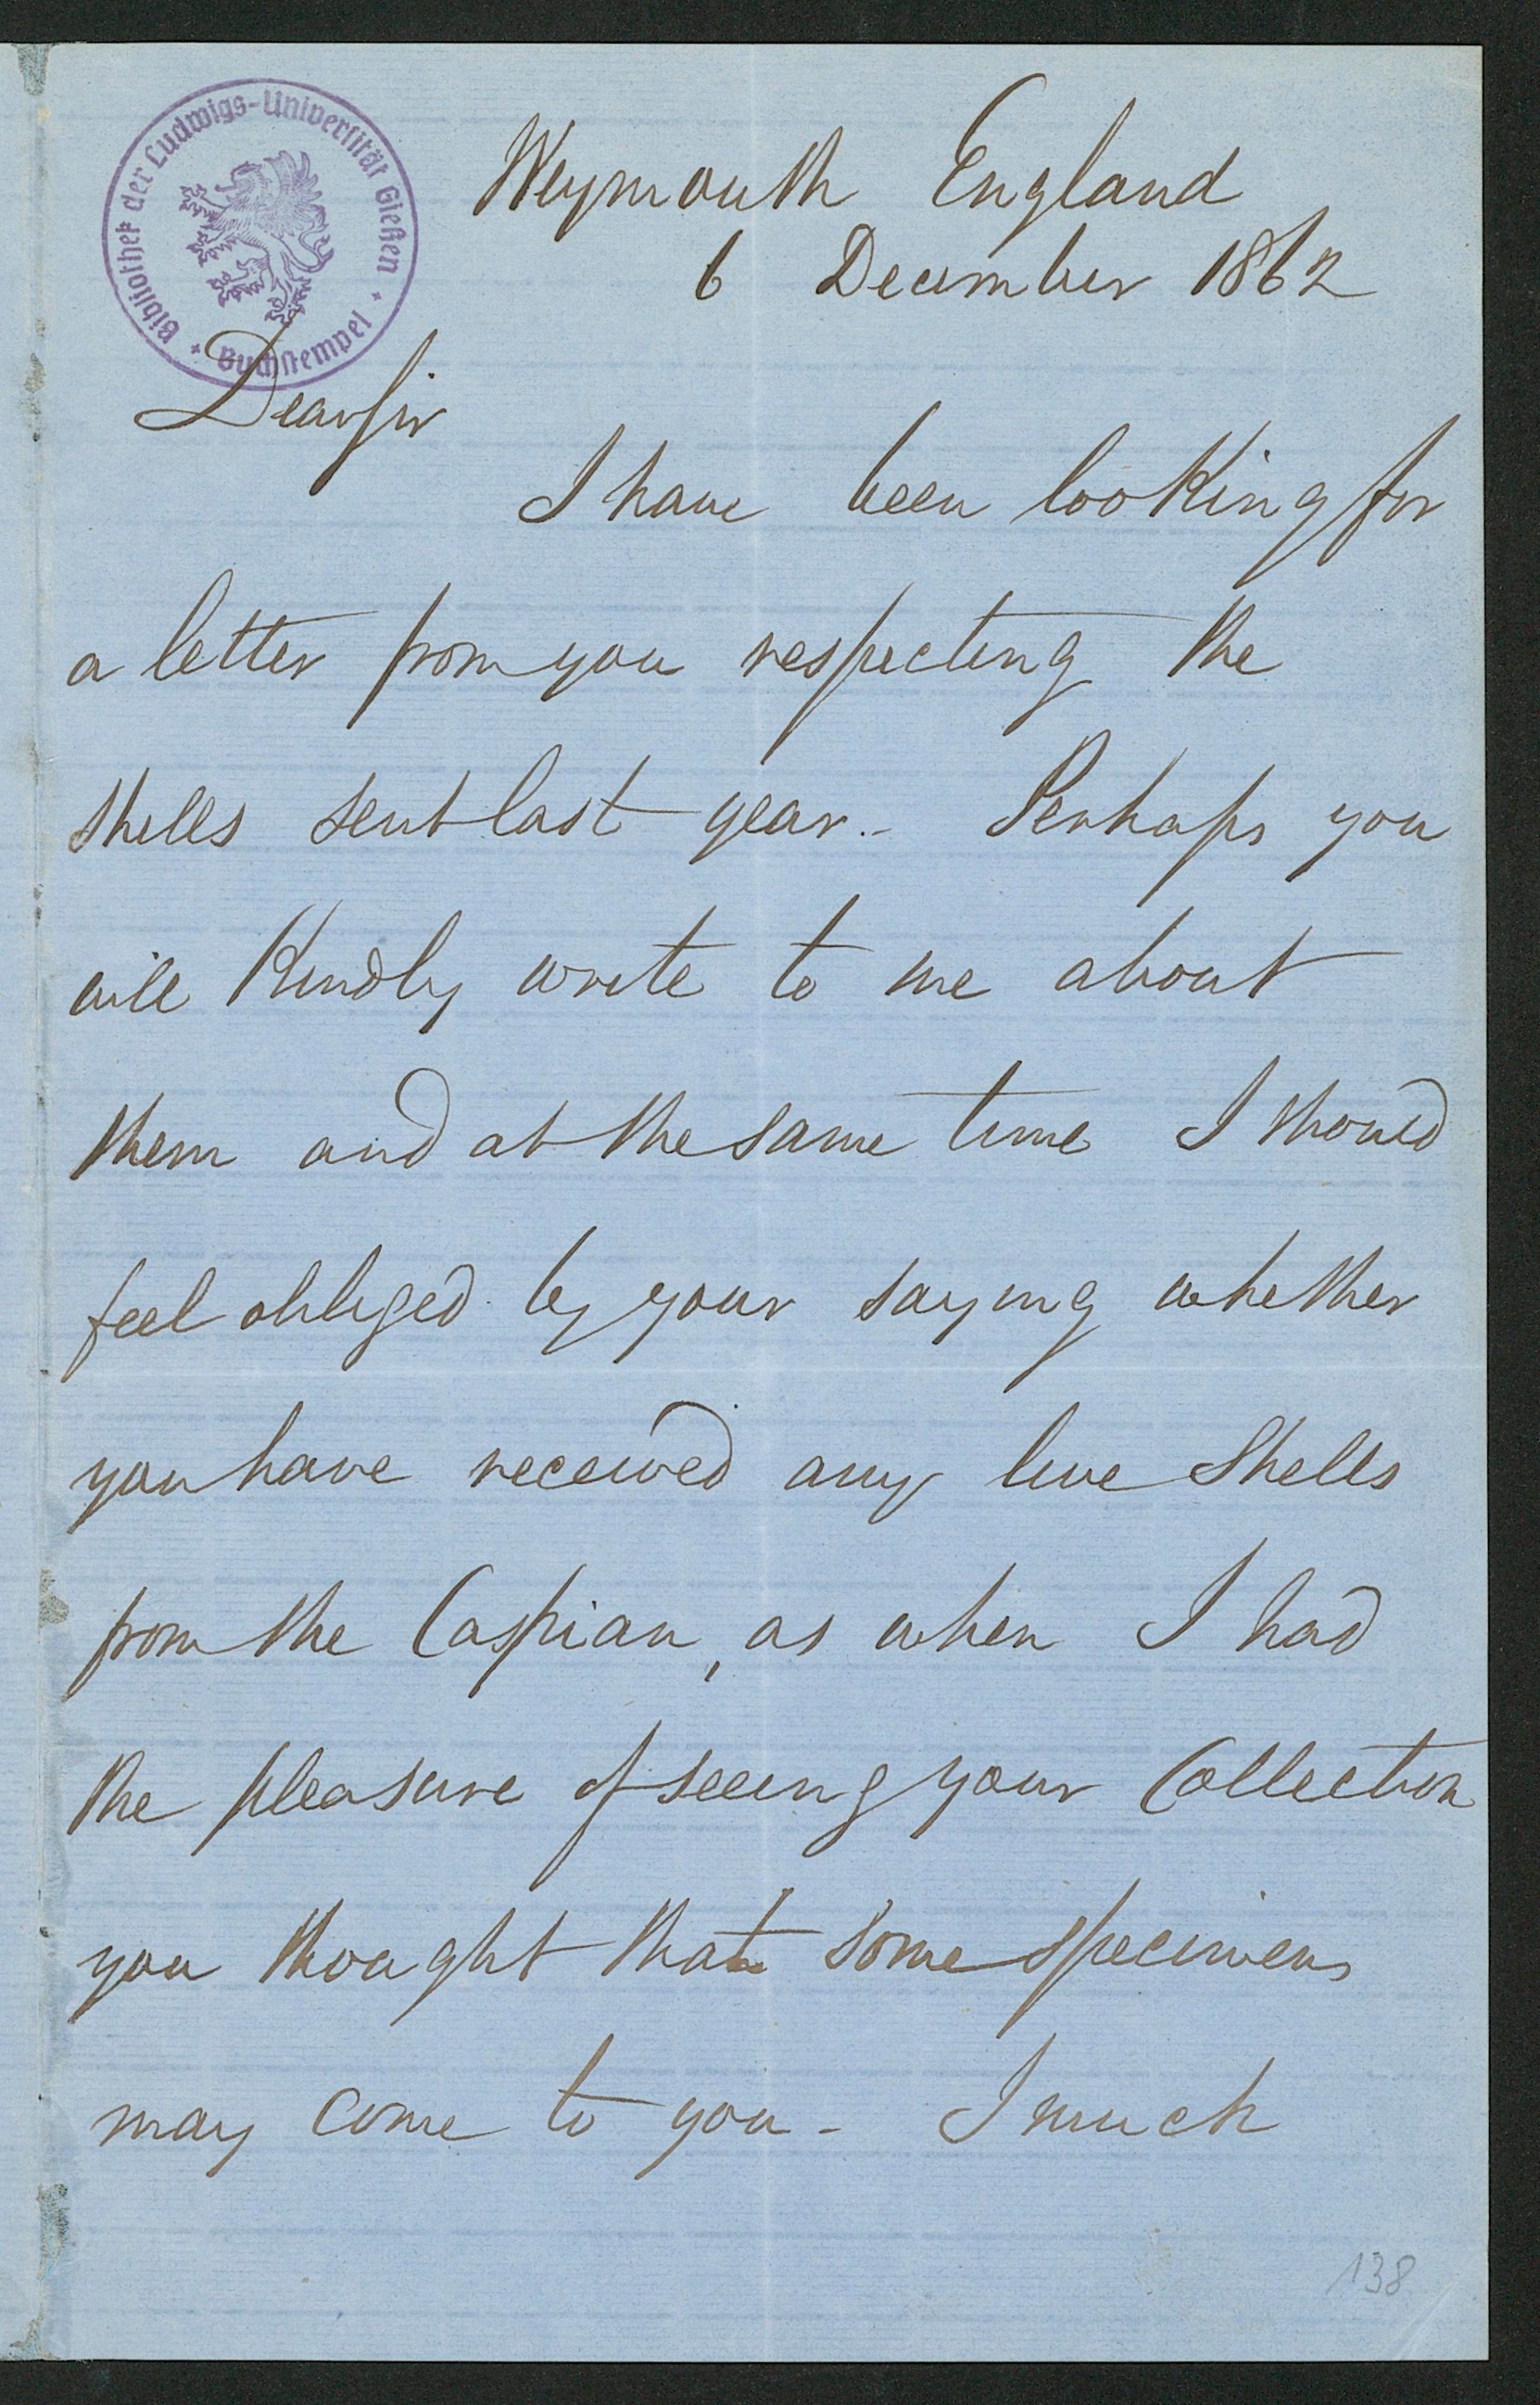 Bibliothek der Ludwigs-Universität Gießen
Buchstempel
Weymouth England
6 December 1862
Dear Sir
I have been looking for
a letter from you respecting the
shells sent last year.- Perhaps you
will Kindly write to me about
them and at the same time I should
feel obliged by your saying whether
you have received any live Shells
from the Caspian, as when I had
the pleasure of seeing your Collection
you thought that some specimens
may come to you - I much
138